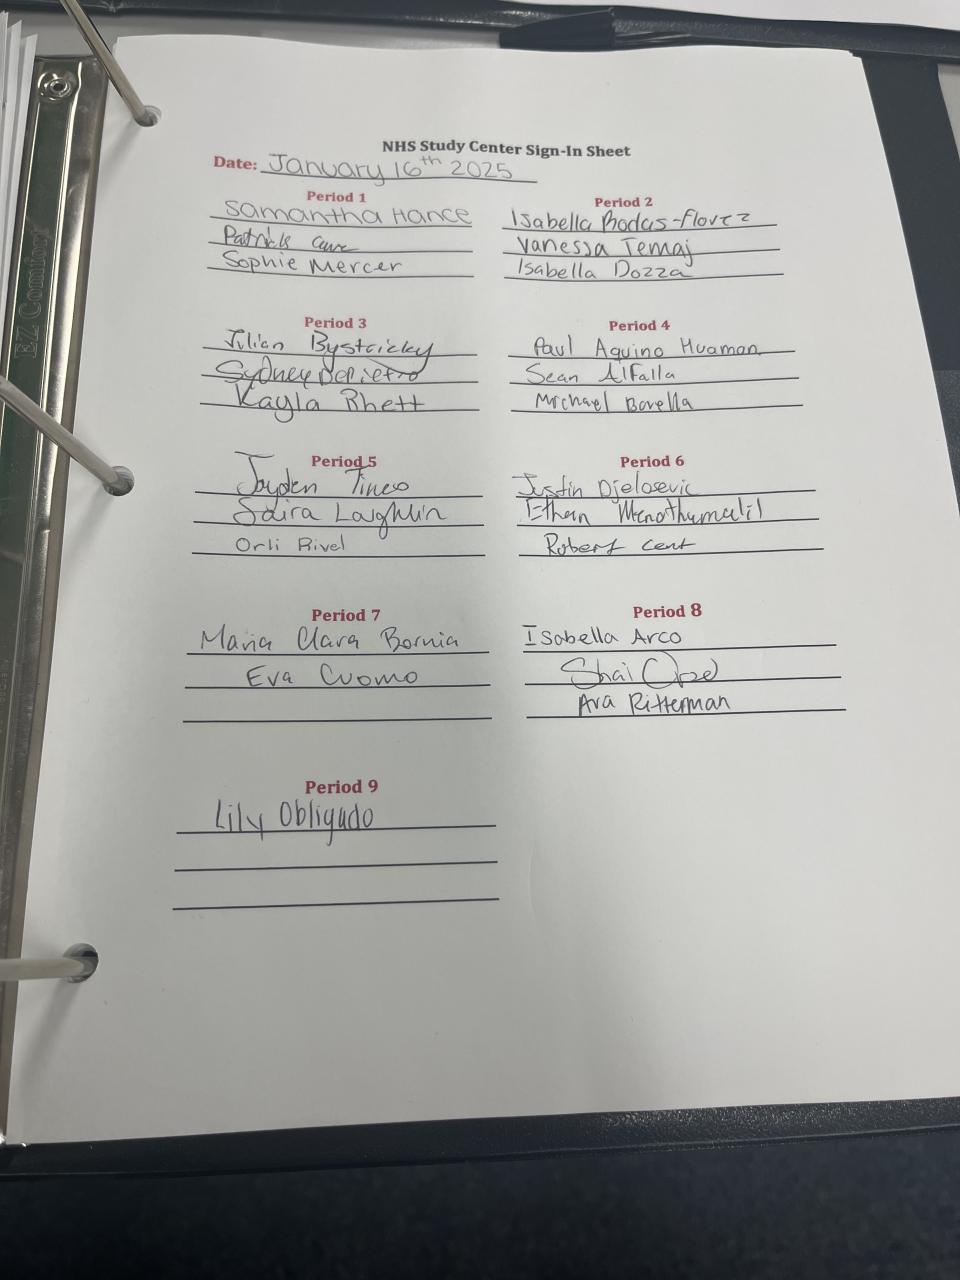 NHS Study Center Sign-In Sheet
Date: January 16th 2025
Period 1
Samantha Hance
Patrick
Sophie Mercer
Period 2
Isabella Rodas-florez
Vanessa Temaj
Isabella Dozza
Period 3
Julian Bystricky
Sydney DePietro
Kayla Rhett
Period 4
Paul Aquino Huaman
Sean Alfalla
Michael Borella
Period 5
Jayden Tineo
Saira Laughlin
Orli Rivel
Period 6
Justin Djelosevic
Ethan
Robert Cent
Period 7
Maria Clara Bornia
Eva Cuomo
Period 8
Isabella Arco
Shai
Ava Ritterman
Period 9
Lily Obligado
EZ Comfort